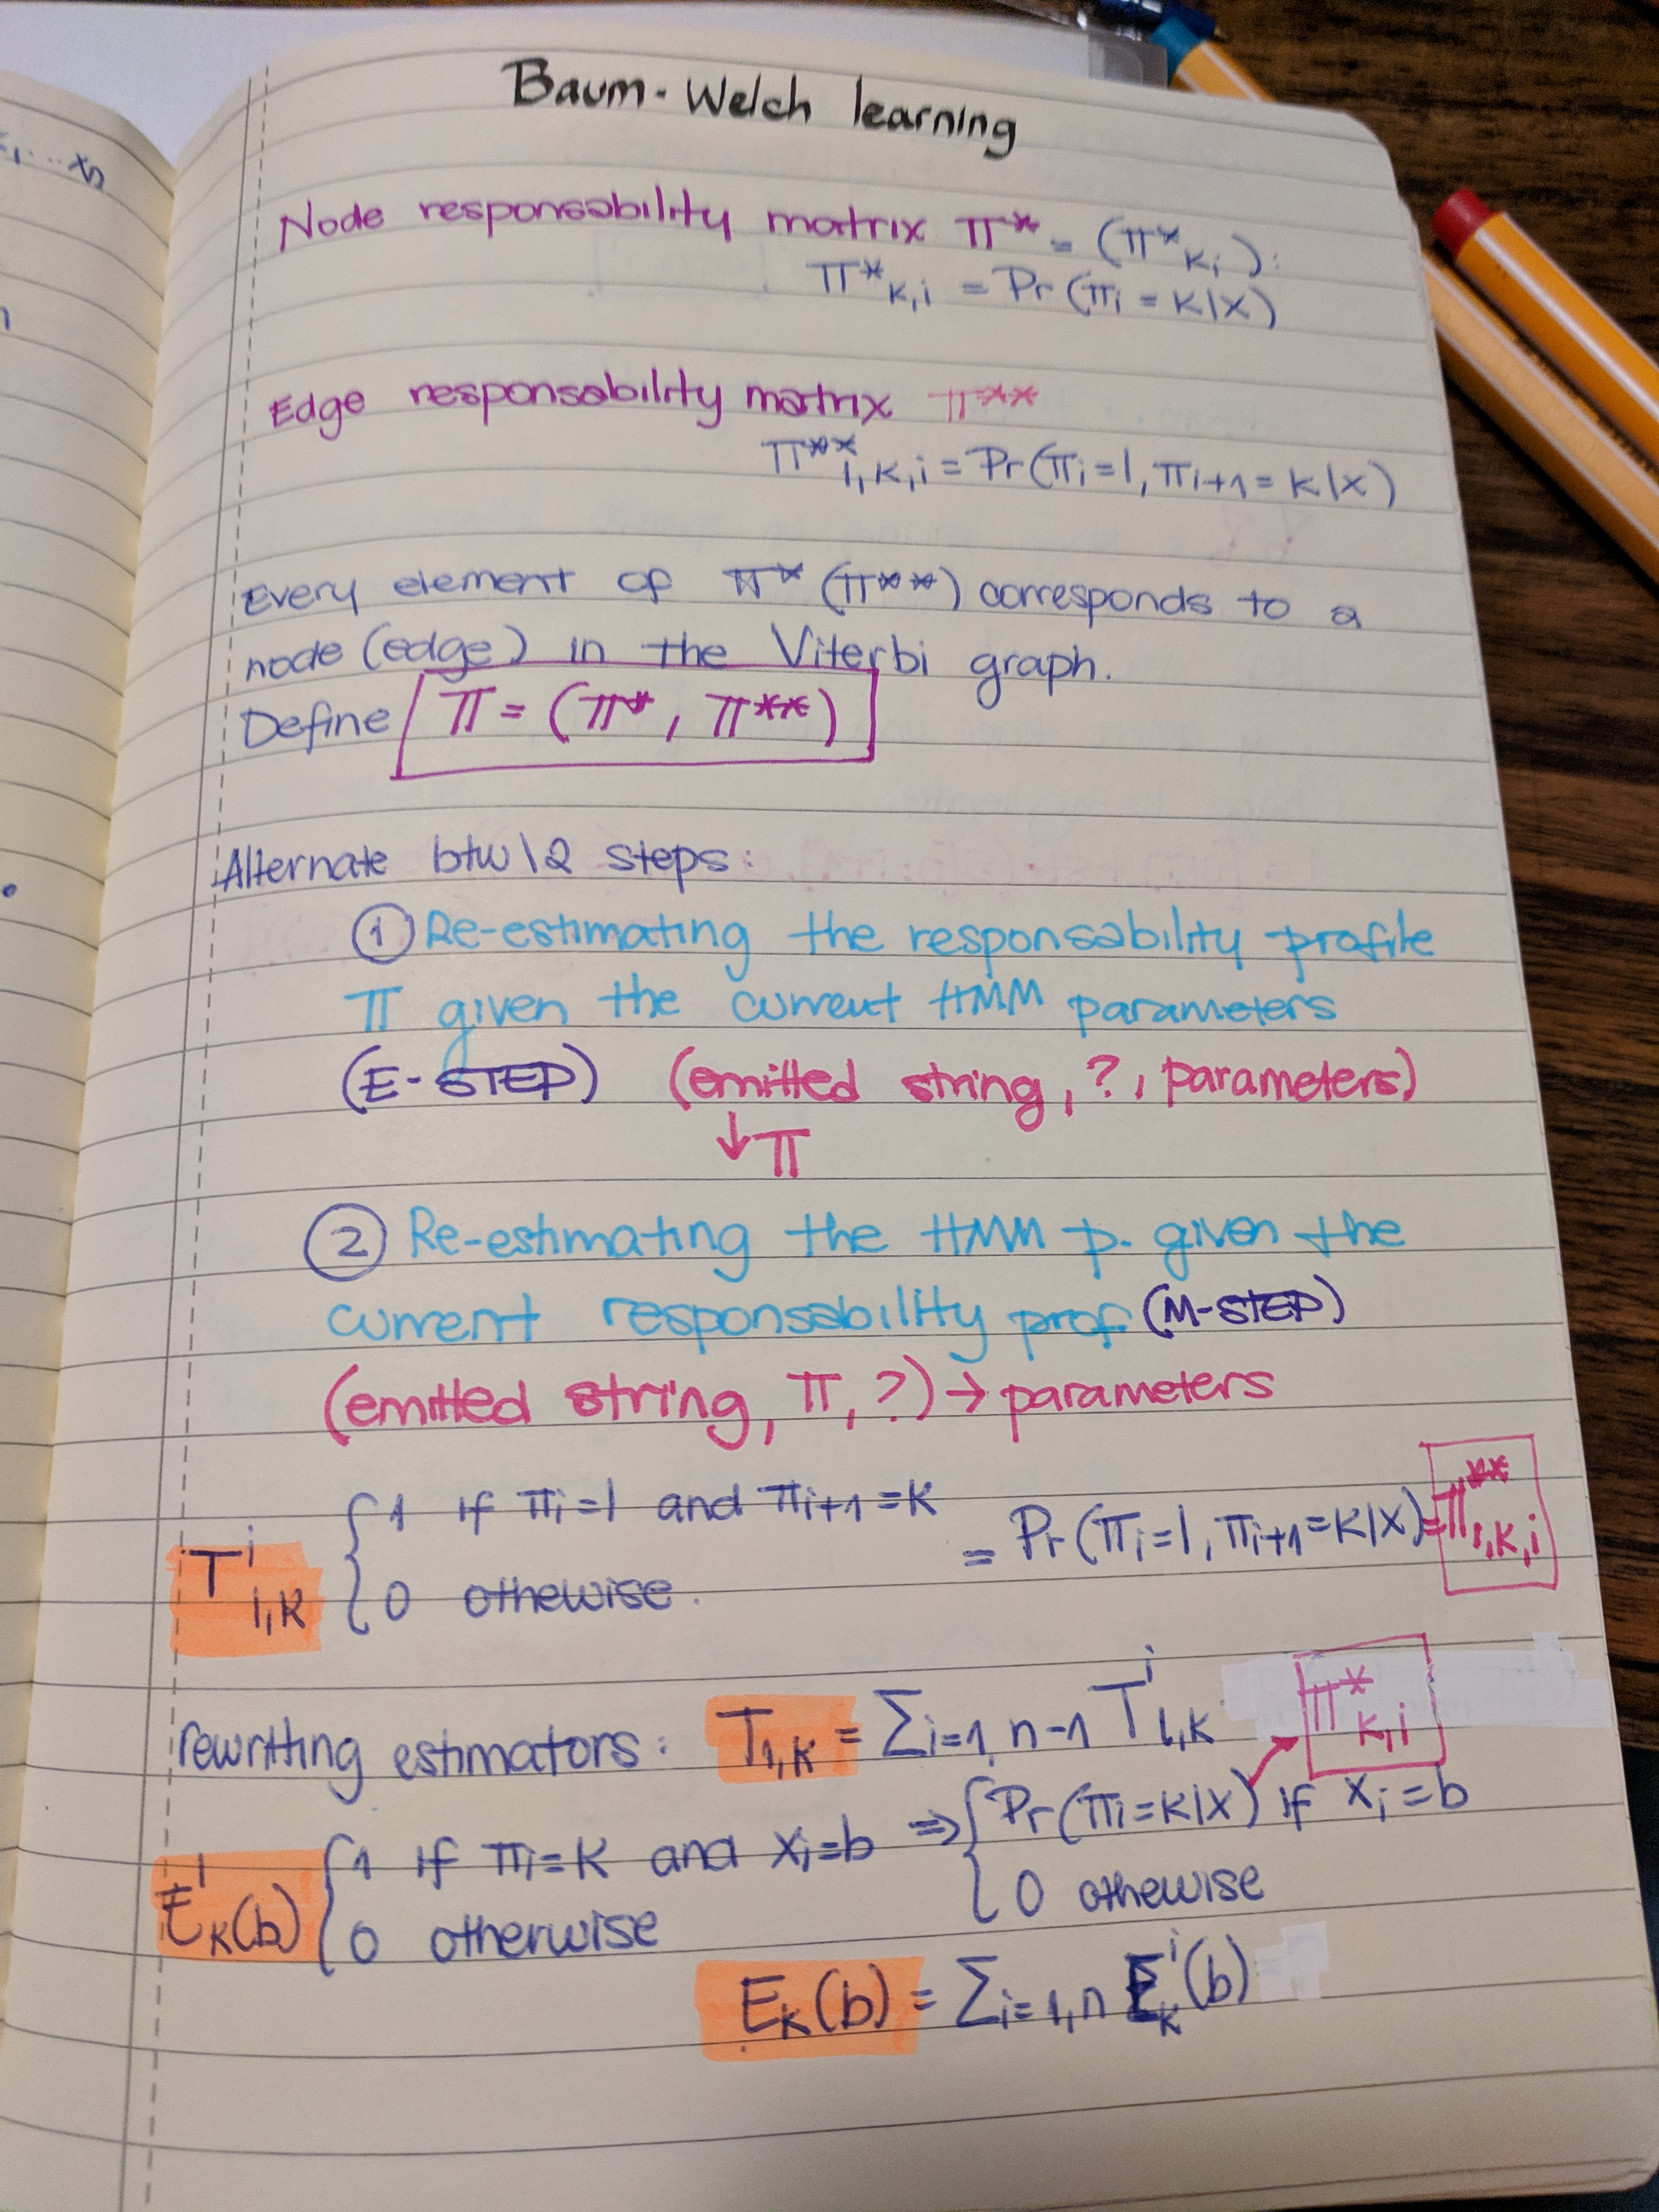 Baum-Welch learning
Node responsability matrix π* = (π*k,i):
π*k,i = Pr(πi = k|x)
Edge responsability matrix π**
π**l,k,i = Pr(πi = l, πi+1 = k|x)
Every element of π* (π**) corresponds to a
node (edge) in the Viterbi graph.
Define π = (π*, π**)
Alternate btw\2 steps:
① Re-estimating the responsability profile
π given the current HMM parameters
(E-STEP) (emitted string, ?, parameters)
↓ π
② Re-estimating the HMM p. given the
current responsability prof (M-STEP)
(emitted string, π, ?) → parameters
T^i l,k { 1 if πi = l and πi+1 = k = Pr(πi = l, πi+1 = k|x) = π**l,k,i
0 othewise.
rewritting estimators: Tl,k = Σi=1, n-1 T^i l,k π*k,i
E^i k(b) { 1 if πi = k and xi = b ⇒ { Pr(πi = k|x) if xi = b
0 otherwise 0 othewise
Ek(b) = Σi=1,n E^i k(b)